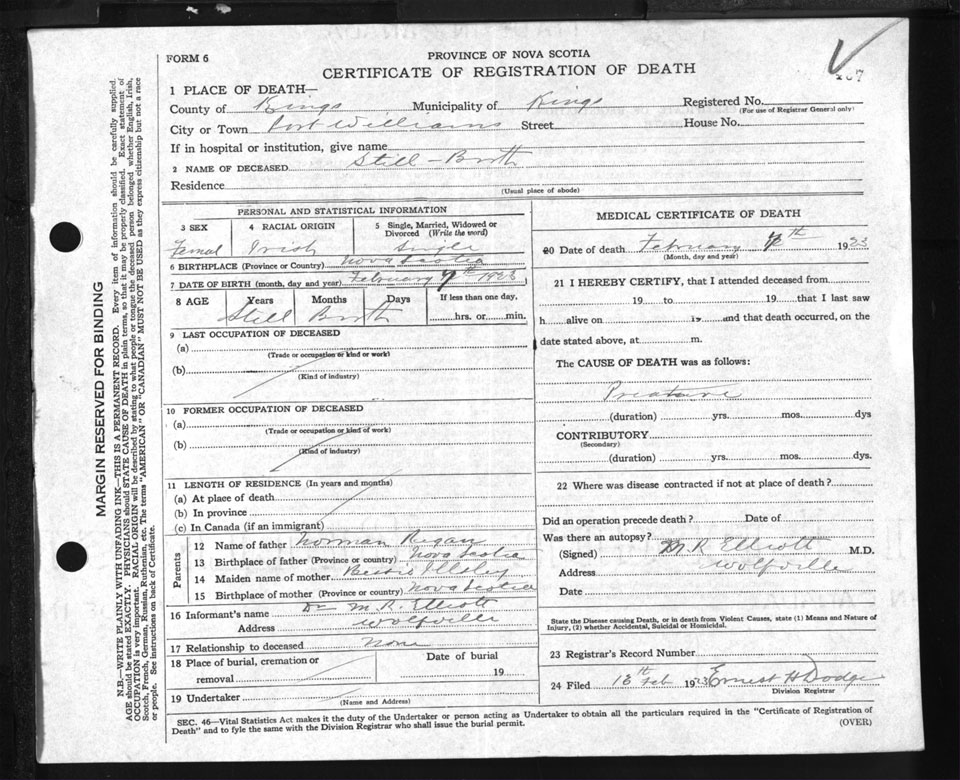 FORM 6
PROVINCE OF NOVA SCOTIA
CERTIFICATE OF REGISTRATION OF DEATH
1 PLACE OF DEATH—
County of Kings Municipality of Kings Registered No.
(For use of Registrar General only)
City or Town Port Williams Street House No.
If in hospital or institution, give name
2 NAME OF DECEASED Still-Birth
Residence
(Usual place of abode)
PERSONAL AND STATISTICAL INFORMATION
3 SEX 4 RACIAL ORIGIN 5 Single, Married, Widowed or Divorced (Write the word)
Femal Irish Single
6 BIRTHPLACE (Province or Country) Nova Scotia
7 DATE OF BIRTH (month, day and year) February 7th
8 AGE Years Months Days If less than one day,
Still Birth hrs. or min.
9 LAST OCCUPATION OF DECEASED
(a)
(Trade or occupation or kind of work)
(b)
(Kind of industry)
10 FORMER OCCUPATION OF DECEASED
(a)
(Trade or occupation or kind of work)
(b)
(Kind of industry)
11 LENGTH OF RESIDENCE (In years and months)
(a) At place of death
(b) In province
(c) In Canada (if an immigrant)
Parents
12 Name of father Norman Regan
13 Birthplace of father (Province or country) Nova Scotia
14 Maiden name of mother Bessie Illsley
15 Birthplace of mother (Province or country) Nova Scotia
16 Informant's name Dr M. R. Elliott
Address Wolfville
17 Relationship to deceased none
18 Place of burial, cremation or removal
Date of burial
19
19 Undertaker
(Name and Address)
MEDICAL CERTIFICATE OF DEATH
20 Date of death February 7th 1933
(Month, day and year)
21 I HEREBY CERTIFY, that I attended deceased from
19 to 19 that I last saw
h alive on 19 and that death occurred, on the
date stated above, at m.
The CAUSE OF DEATH was as follows:
(duration) yrs. mos. dys
CONTRIBUTORY
(Secondary)
(duration) yrs. mos. dys.
22 Where was disease contracted if not at place of death?
Did an operation precede death? Date of
Was there an autopsy?
(Signed) M R Elliott M.D.
Address Wolfville
Date
State the Disease causing Death, or in death from Violent Causes, state (1) Means and Nature of
Injury, (2) whether Accidental, Suicidal or Homicidal.
23 Registrar's Record Number
24 Filed 13th Feb 1933 Ernest H Dodge
Division Registrar
SEC. 46—Vital Statistics Act makes it the duty of the Undertaker or person acting as Undertaker to obtain all the particulars required in the "Certificate of Registration of
Death" and to fyle the same with the Division Registrar who shall issue the burial permit.
(OVER)
MARGIN RESERVED FOR BINDING
N.B.—WRITE PLAINLY WITH UNFADING INK—THIS IS A PERMANENT RECORD. Every item of information should be carefully supplied.
AGE should be stated EXACTLY. PHYSICIANS should STATE CAUSE OF DEATH in plain terms, so that it may be properly classified. Exact statement of
OCCUPATION is very important. RACIAL ORIGIN will be described by stating to what people or tongue the deceased person belonged whether English, Irish,
Scotch, French, German, Russian, Ruthenian, etc. The terms "AMERICAN" OR "CANADIAN" MUST NOT BE USED as they express citizenship but not a race
or people. See instructions on back of Certificate.